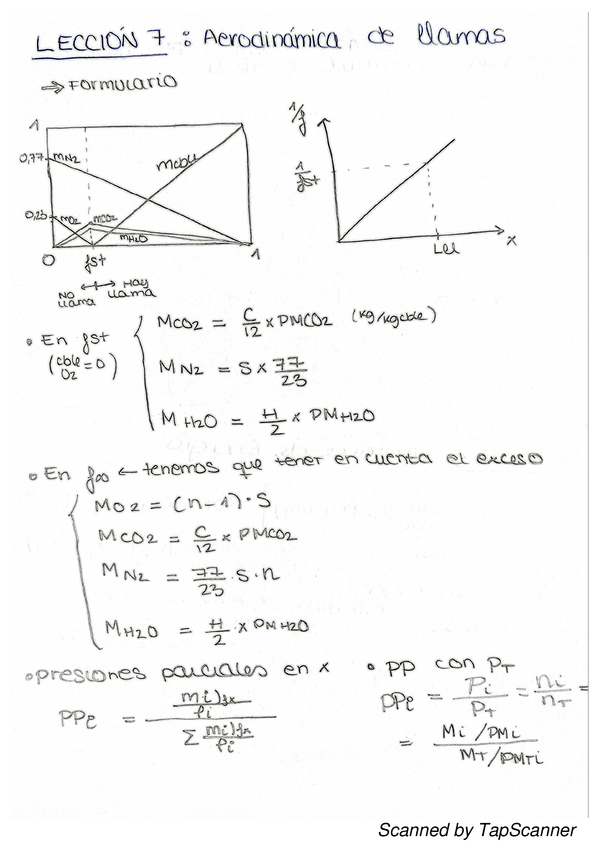 LECCIÓN 7 : Aerodinámica de llamas
⇒ FORMULARIO
1
0,77 mN2
mcble
0,23 mO2 mCO2
mH2O
0 fst 1
NO llama ←|→ Hay llama
1/f
1/fst
Lll x
• En fst
(cble = 0
O2)
MCO2 = C/12 x PMCO2 (kg/kgcble)
MN2 = S x 77/23
MH2O = H/2 x PMH2O
• En f∞ ← tenemos que tener en cuenta el exceso
MO2 = (n-1)·S
MCO2 = C/12 x PMCO2
MN2 = 77/23 ·S·n
MH2O = H/2 · x PMH2O
• presiones parciales en x
PPi = mi)fx/ρi / Σ mi)fx/ρi
• PP con PT
PPi = Pi/PT = ni/nT =
= Mi/PMi / MT/PMTi
Scanned by TapScanner